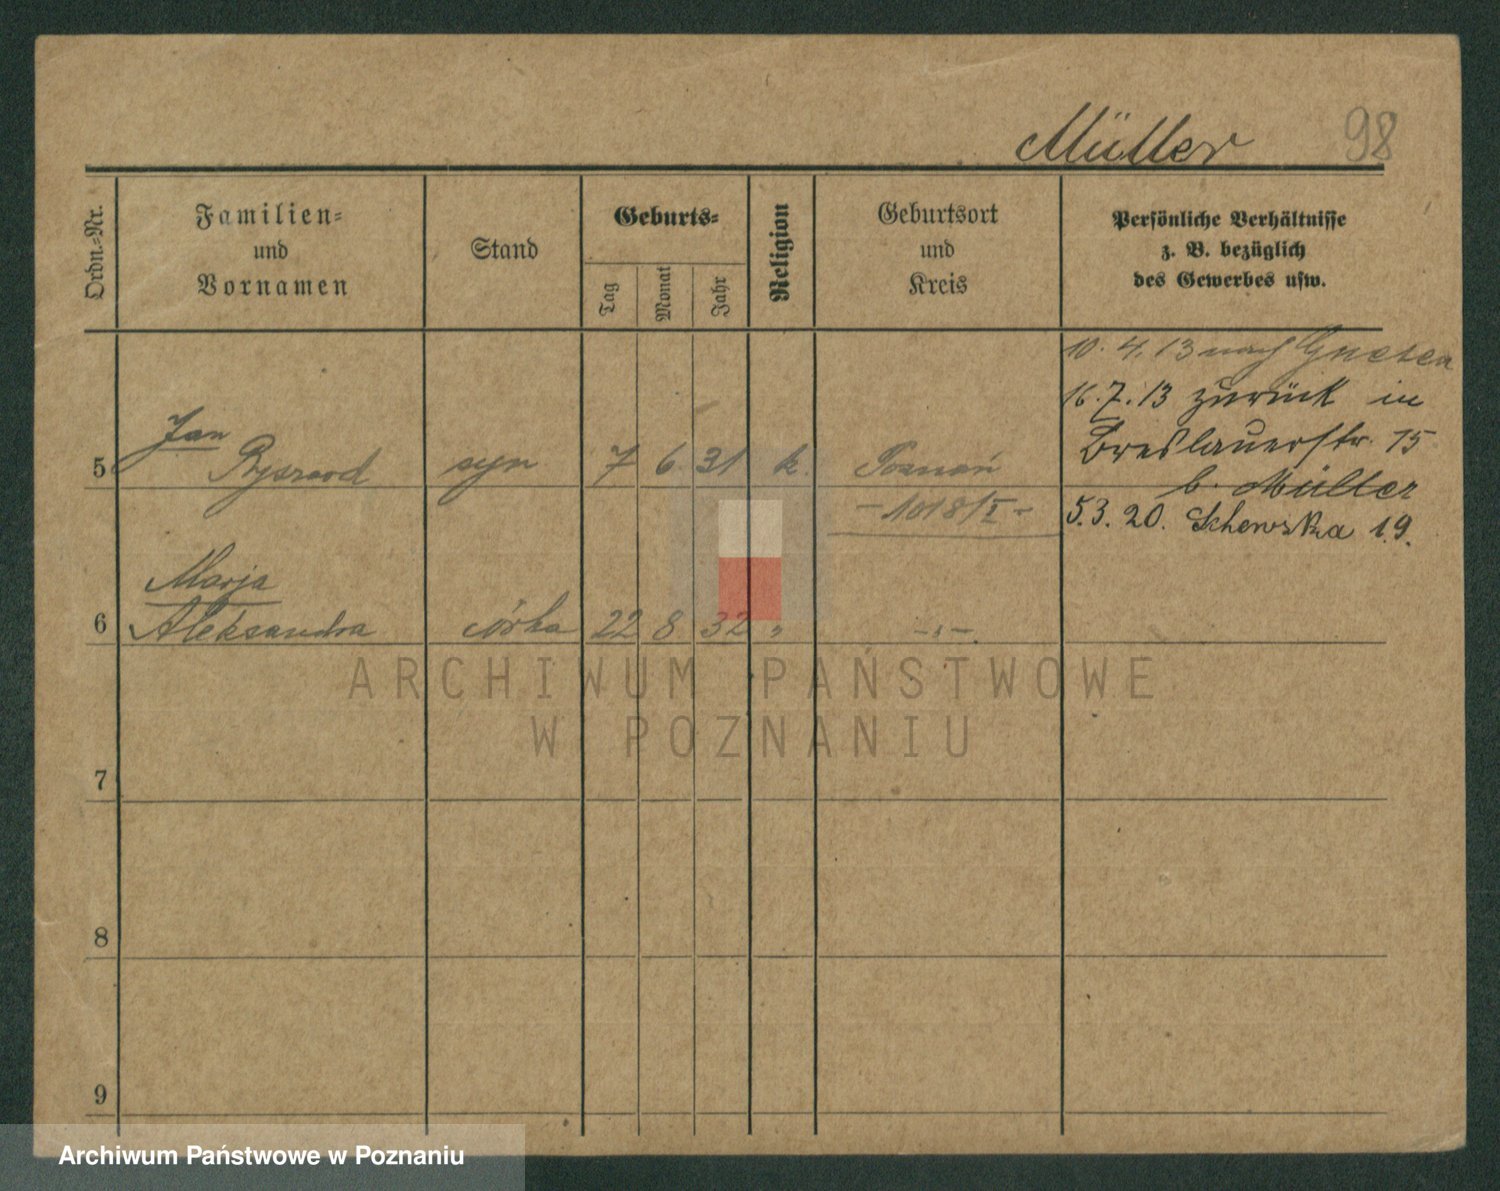 Müller 98
Ordn.-Nr.
Familien-
und
Vornamen
Stand
Geburts-
Tag
Monat
Jahr
Religion
Geburtsort
und
Kreis
Persönliche Verhältnisse
z. B. bezüglich
des Gewerbes usw.
10. 4. 13 nach Gnesen
16. 7. 13 zurück in
Breslauerstr. 15
b. Müller
5.3. 20. 19.
Jan
5 Ryszard syn 7 6 31 k. Poznań
- 1018/I -
Marja
6 Aleksandra córka 22 8 32 " -"-
7
8
9
ARCHIWUM PAŃSTWOWE
W POZNANIU
Archiwum Państwowe w Poznaniu